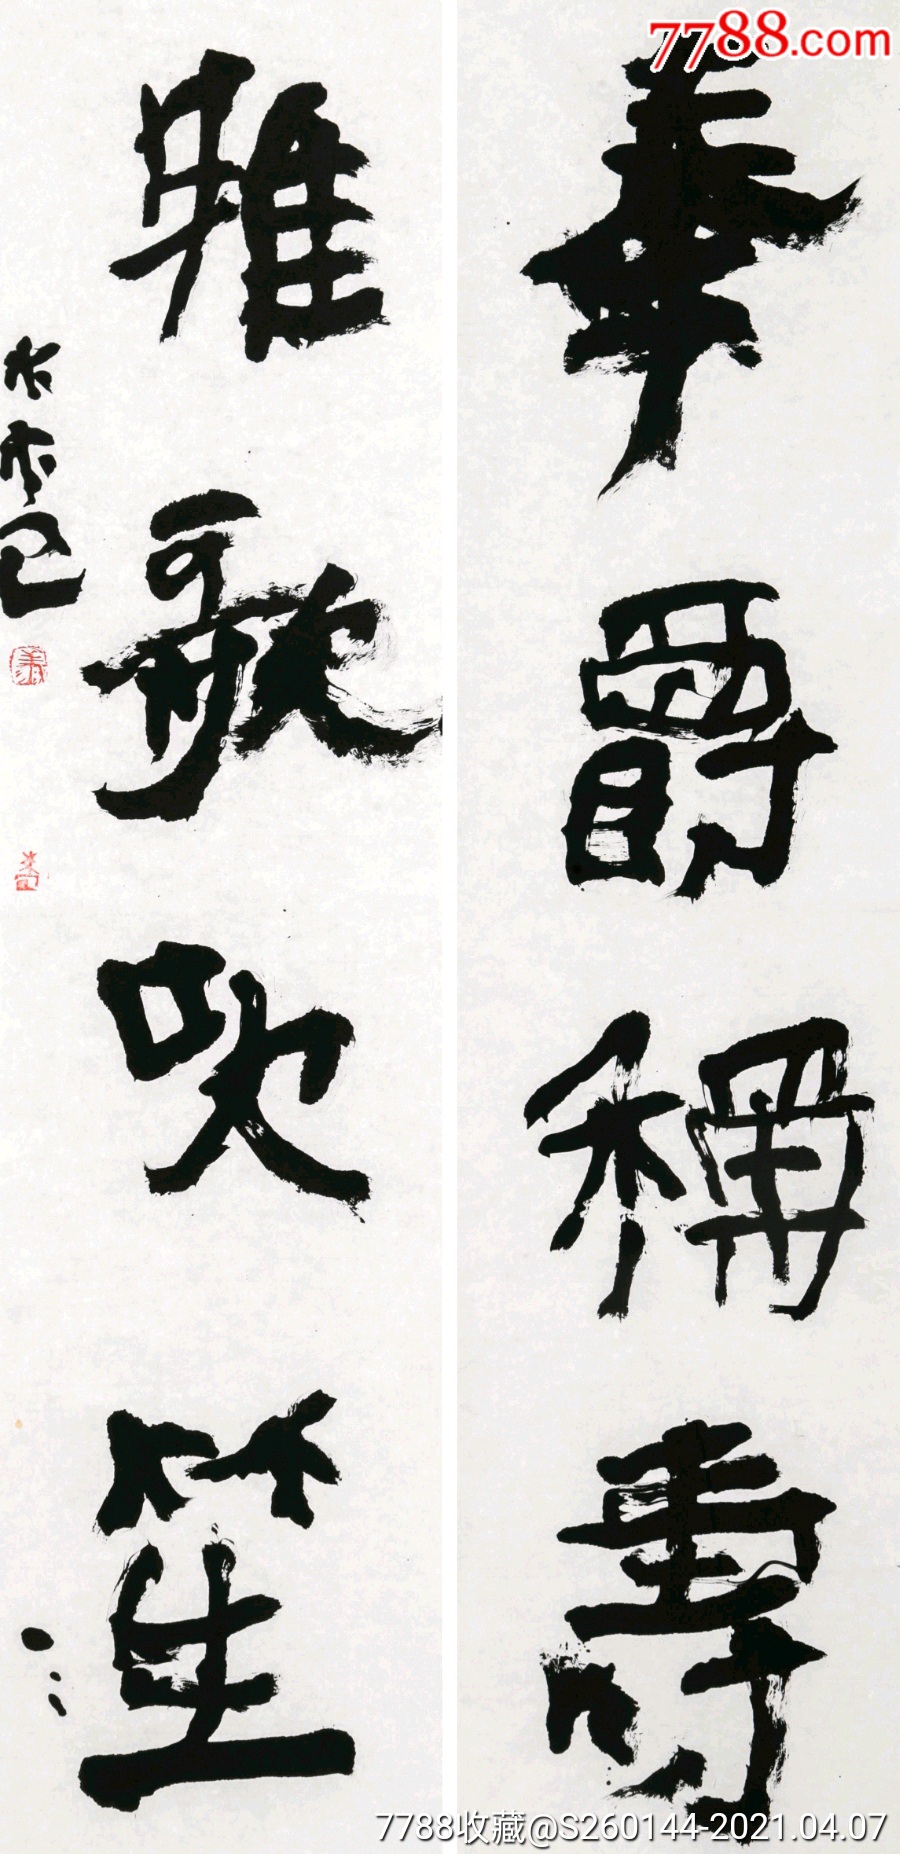 7788.com
奉爵稱壽
雅歌吹笙
7788收藏@S260144-2021.04.07